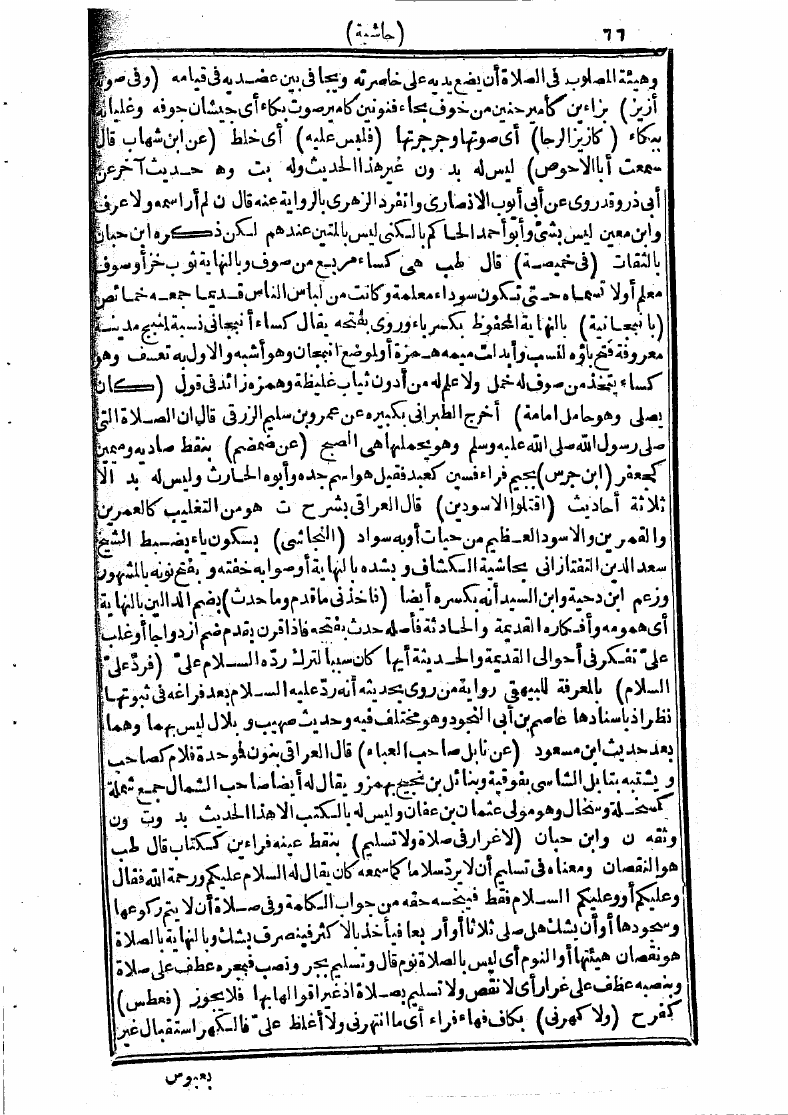 ٦٦ (حاشية)
وهيئة المصلوب فى الصلاة أن يضع يديه على خاصرته ويجافى بين عضديه فى قيامه (وفى صو
أزيز) بزاءين كأمير حنين من خوف بخاء فنونين كامير صوت بكاء أى جيشان جوفه وغليانه
ببكاء (كازيز الرحا) أى صوتها وجرجرتها (فلبس عليه) أى خلط (عن ابن شهاب قال
سمعت أبا الاحوص) ليس له بد ون غير هذا الحديث وله بت وه حديث آخر عن
أبى ذر وقد روى عن أبى أيوب الانصارى وانفرد الزهرى بالرواية عنه قال ن لم أر اسمه ولا عرف
وابن معين ليس بشئ وأبو أحمد الحاكم بالكنى ليس بالمتين عندهم لكن ذكره ابن حبان
بالثقات (فى خميصة) قال طب هى كساء مربع من صوف وبالنهاية ثوب خز أو صوف
معلم أولا تسماه حتى تكون سوداء معلمة وكانت من لباس الناس قديما جمعه خمائص
(بانبجانية) بالنهاية المحفوظ بكسر باء وروى بفتحه يقال كساء أنبجانى نسبة لمنبج مدينة
معروفة فتح باؤه لنسب وأبدلت ميمه همزة أو لموضع انبجان وهو أشبه والاول به تعسف وهو
كساء يتخذ من صوف له خمل ولا علم له من أدون ثياب غليظة وهمزه زائد فى قول (كان
يصلى وهو حامل امامة) أخرج الطبرانى بكبيره عن عمرو بن سليم الزرقى قال ان الصلاة التى
صلى رسول الله صلى الله عليه وسلم وهو يحملها هى الصبح (عن ضمضم) بنقط صاديه وميمين
كجعفر (ابن جوس) بجيم فراء فسين كعبد فقيل هو اسم جده وأبوه الحارث وليس له بد الا
ثلاثة أحاديث (اقتلوا الاسودين) قال العراقى بشرح ت هو من التغليب كالعمرين
والقمرين والاسود العظيم من حيات أو به سواد (النجاشى) بسكون ياء بضبط الشيخ
سعد الدين التفتازانى بحاشية الكشاف وبشده بالنهاية أو صوابه خفته وبفتح نونه بالمشهور
وزعم ابن دحية وابن السيد أنه بكسره أيضا (فاخذنى ما قدم وما حدث) بضم الدالين بالنهاية
أى همومه وأفكاره القديمة والحادثة فأصله حدث بفتحه فاذا قرن بقدم ضم ازدواجا أو غلب
علىّ تفكرى أحوالى القديمة والحديثة أيها كان سببا لترك رده السلام علىّ (فرد علىّ
السلام) بالمعرفة للبيهقى رواية من روى بحديثه أنه رد عليه السلام بعد فراغه فى ثبوتها
نظر اذ باسنادها عاصم بن أبى النجود وهو مختلف فيه وحديث صهيب وبلال ليس بهما وهما
بعد حديث ابن مسعود (عن نابل صاحب العباء) قال العراقى بنون فموحدة فلام كصاحب
ويشتبه بتابل الشاسى بفوقية وبنائل بن نجيح بهمز ويقال له أيضا صاحب الشمال جمع شملة
كسخلة وسخال وهو مولى عثمان بن عفان وليس له بالكتب الا هذا الحديث بد وت ون
وثقه ن وابن حبان (لا غرار فى صلاة ولا تسليم) بنقط عينه فراءين ككتاب قال طب
هو النقصان ومعناه فى تسليم أن لا يرد سلاما كما سمعه كان يقال له السلام عليكم ورحمة الله فقال
وعليكم أو وعليكم السلام فقط فيبخسه حقه من جواب الكلمة وفى صلاة أن لا يتم ركوعها
وسجودها أو أن يشك هل صلى ثلاثا أو أربعا فيأخذ بالاكثر فينصرف بشك وبالنهاية بالصلاة
هو نقصان هيئتها أو النوم أى ليس بالصلاة نوم قال وتسليم بجر ونصب فبجره عطف على صلاة
وبنصبه عطف على غرار أى لا نقص ولا تسليم بصلاة اذ غير اقوالها بها فلا يجوز (فعطس)
كفرح (ولا كهرنى) بكاف فهاء فراء أى ما انتهرنى ولا أغلظ علىّ فالكهر استقبال غير
بعبوس